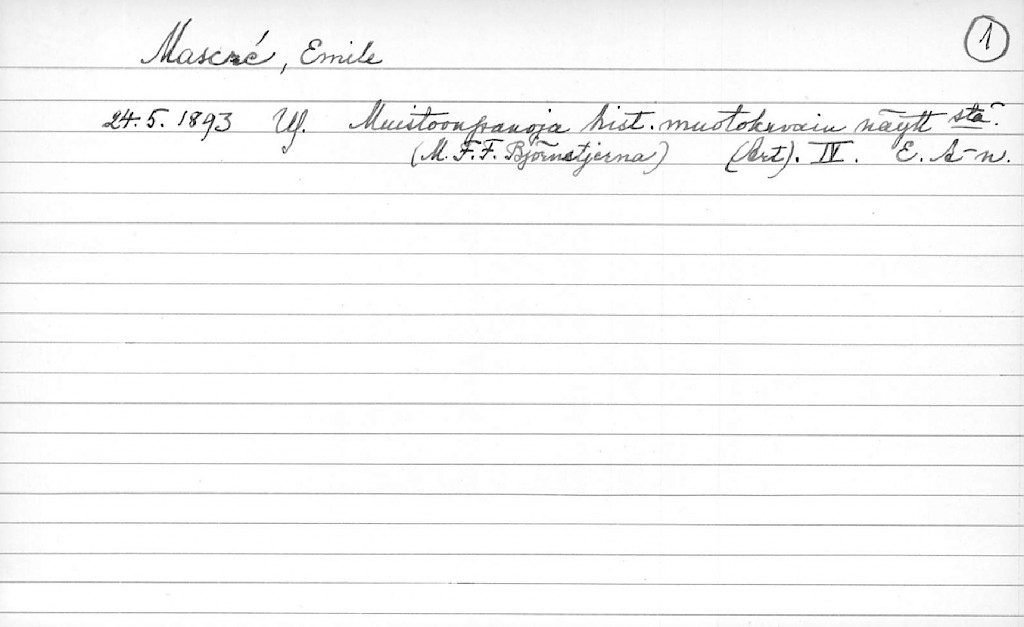 Mascré, Emile 1
24.5.1893 Uf. Muistoonpanoja hist. muotokuvain näytt stä.
(M. F. F. Björnstjerna) (Art). IV. E. A-n.